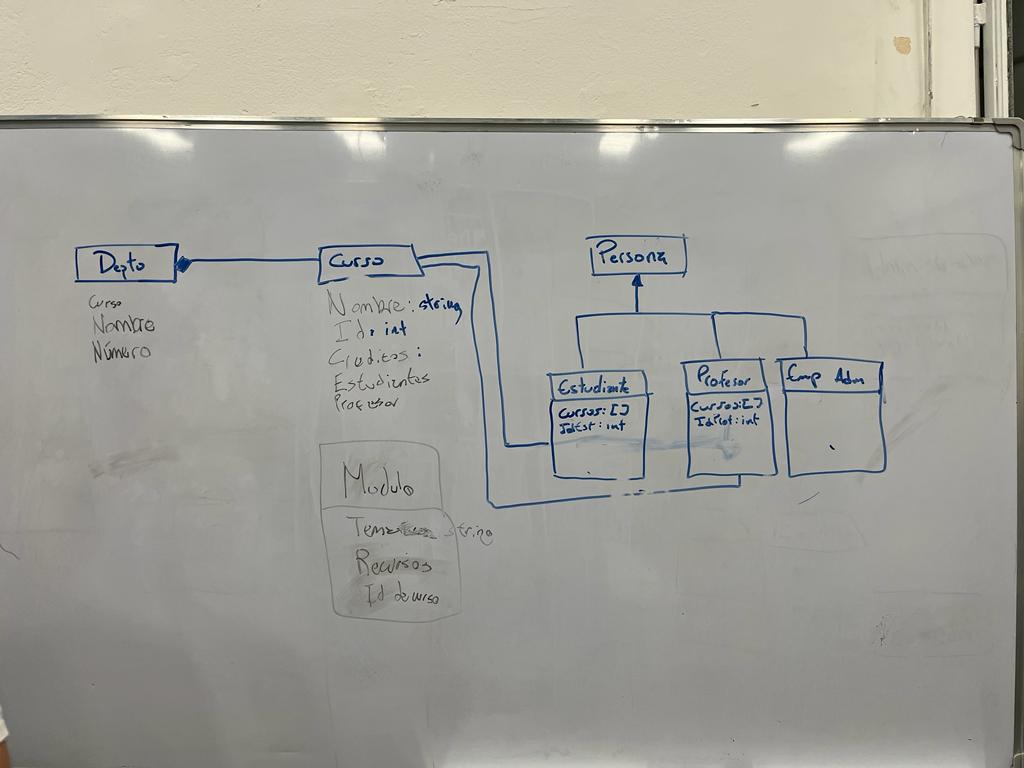 Depto
Curso
Nombre
Número
Curso
Nombre: string
Id: int
Creditos:
Estudiantes
Profesor
Modulo
Tema string
Recursos
Id de curso
Persona
Estudiante
Cursos: []
IdEst: int
Profesor
Cursos: []
IdProf: int
Emp Adm